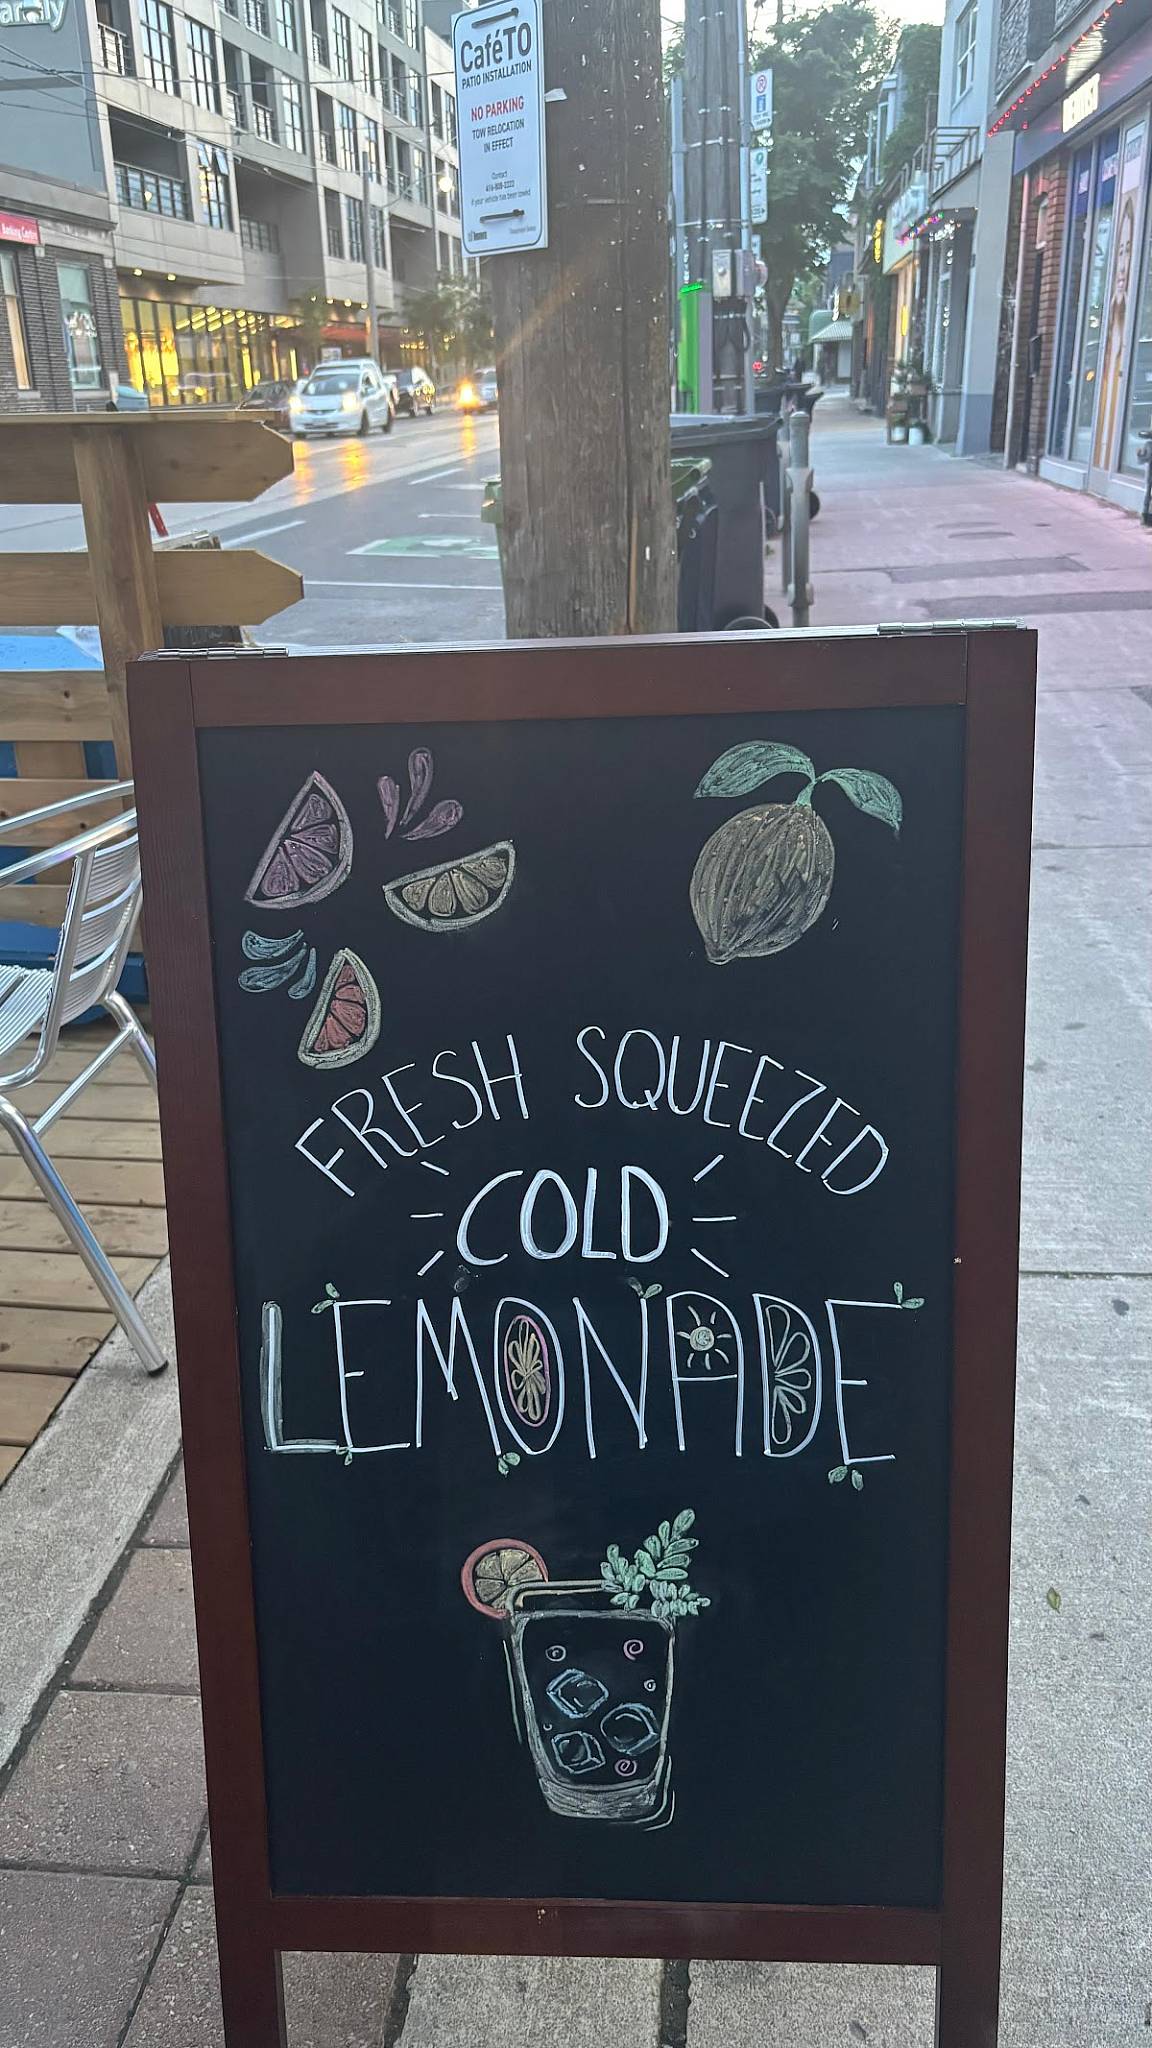 CaféTO
PATIO INSTALLATION
NO PARKING
TOW RELOCATION
IN EFFECT
Contact
416-808-2222
if your vehicle has been towed
Banking Centre
FRESH SQUEEZED
COLD
LEMONADE